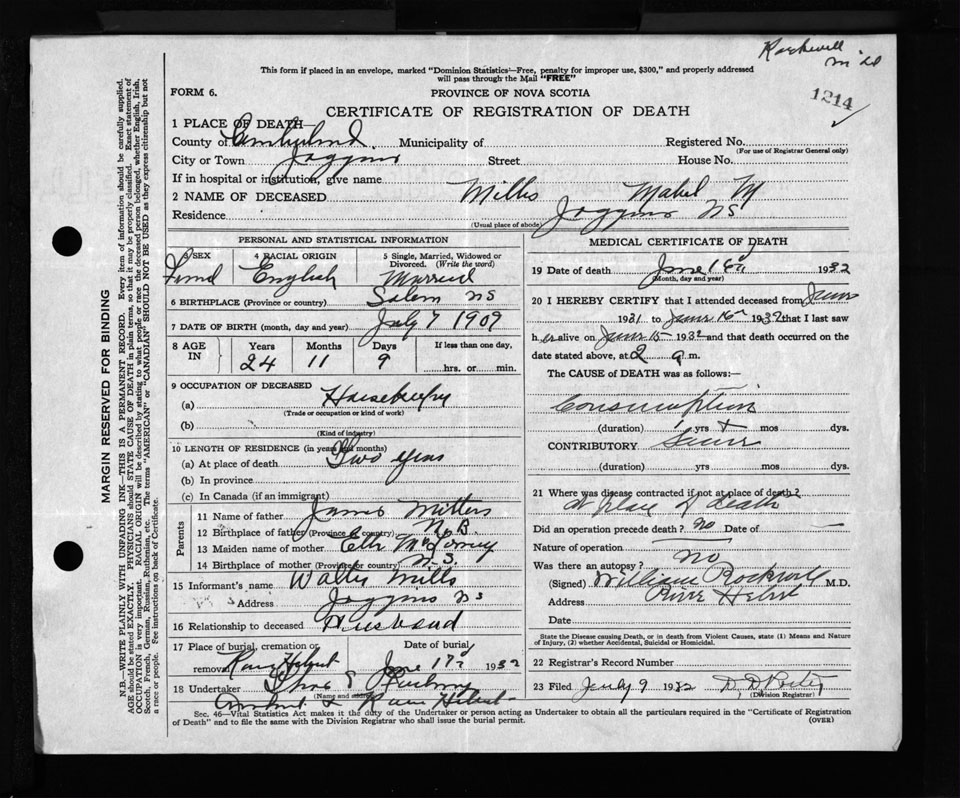 Rockwell
M 20
This form if placed in an envelope, marked "Dominion Statistics—Free, penalty for improper use, $300," and properly addressed
will pass through the Mail "FREE"
FORM 6.
PROVINCE OF NOVA SCOTIA
1214
CERTIFICATE OF REGISTRATION OF DEATH
1 PLACE OF DEATH
County of Cumberland Municipality of Registered No.
(For use of Registrar General only)
City or Town Joggins Street House No.
If in hospital or institution, give name
2 NAME OF DECEASED Mills Mabel M
Residence Joggins NS
(Usual place of abode)
PERSONAL AND STATISTICAL INFORMATION
3 SEX 4 RACIAL ORIGIN 5 Single, Married, Widowed or Divorced. (Write the word)
English Married
6 BIRTHPLACE (Province or country) Salem NS
7 DATE OF BIRTH (month, day and year) July 7 1909
8 AGE IN Years Months Days If less than one day,
24 11 9 hrs. or min.
9 OCCUPATION OF DECEASED
(a) Housekeeping
(Trade or occupation or kind of work)
(b)
(Kind of industry)
10 LENGTH OF RESIDENCE (in years and months)
(a) At place of death Two years
(b) In province
(c) In Canada (if an immigrant)
Parents
11 Name of father James Mitters
12 Birthplace of father (Province or country) N.B.
13 Maiden name of mother
14 Birthplace of mother (Province or country) N.S.
15 Informant's name Mills
Address Joggins NS
16 Relationship to deceased Husband
17 Place of burial, cremation or removal River Hebert
Date of burial June 17 1932
18 Undertaker
Name and address
Amherst & River Hebert
MEDICAL CERTIFICATE OF DEATH
19 Date of death June 16 1932
(Month, day and year)
20 I HEREBY CERTIFY that I attended deceased from June
1931 to June 16 1932 that I last saw
her alive on June 15 1932 and that death occurred on the
date stated above, at 2 a m.
The CAUSE of DEATH was as follows:—
Consumption
(duration) 1 yrs mos dys.
CONTRIBUTORY
(duration) yrs mos dys.
21 Where was disease contracted if not at place of death?
At place of death
Did an operation precede death? no Date of —
Nature of operation
Was there an autopsy? no
(Signed) William Rockwell M.D.
Address River Hebert
Date
State the Disease causing Death, or in death from Violent Causes, state (1) Means and Nature
of Injury, (2) whether Accidental, Suicidal or Homicidal.
22 Registrar's Record Number
23 Filed July 9 1932 D. D. Porter
(Division Registrar)
Sec. 46—Vital Statistics Act makes it the duty of the Undertaker or person acting as Undertaker to obtain all the particulars required in the "Certificate of Registration
of Death" and to file the same with the Division Registrar who shall issue the burial permit.
(OVER)
MARGIN RESERVED FOR BINDING
N.B.—WRITE PLAINLY WITH UNFADING INK—THIS IS A PERMANENT RECORD. Every item of information should be carefully supplied.
AGE should be stated EXACTLY. PHYSICIANS should STATE CAUSE OF DEATH in plain terms, so that it may be properly classified. Exact statement of
OCCUPATION is very important. RACIAL ORIGIN will be described by stating to what people or race the deceased person belonged, whether English, Irish,
Scotch, French, German, Russian, Ruthenian, etc. The terms "AMERICAN" or "CANADIAN" SHOULD NOT BE USED as they express citizenship but not
a race or people. See instructions on back of Certificate.